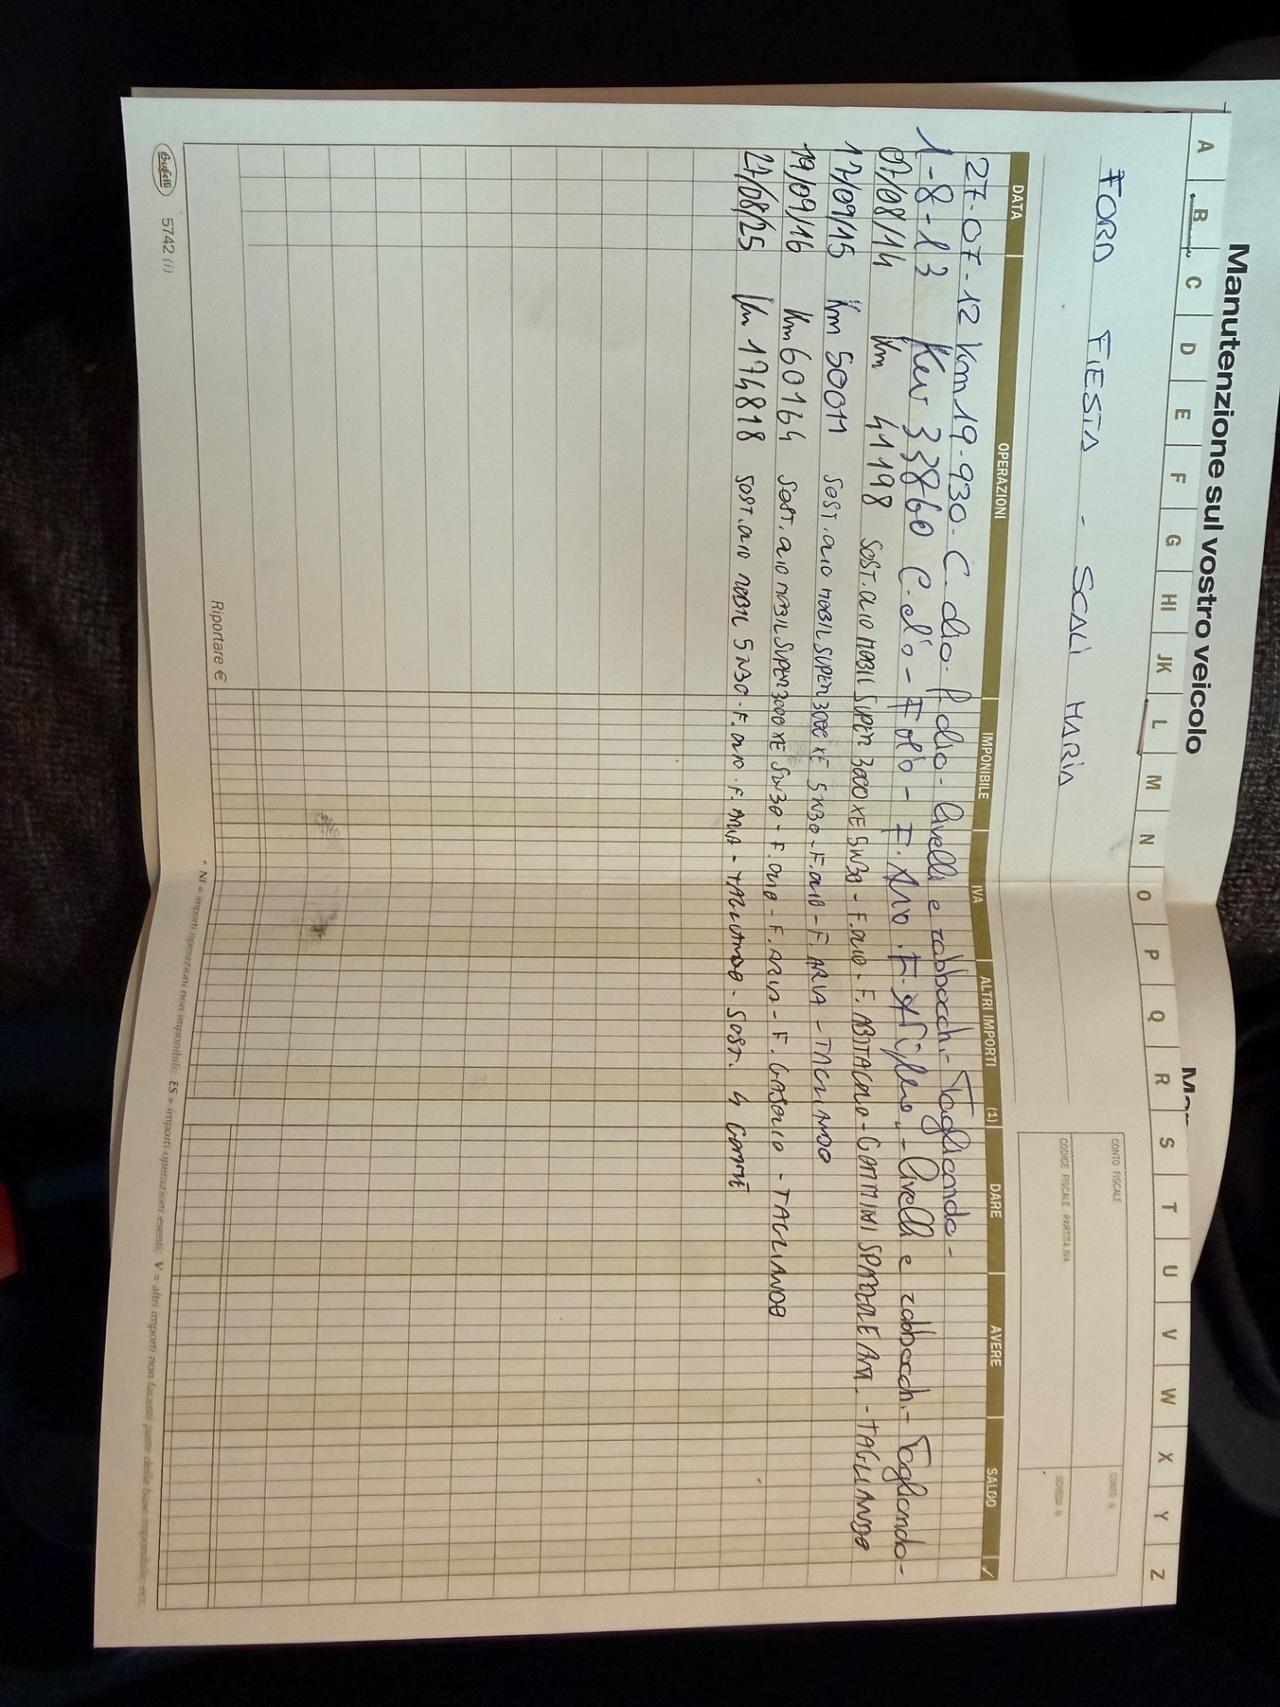 Manutenzione sul vostro veicolo
A B C D E F G HI JK L M N O P Q R S T U V W X Y Z
FORD FIESTA - SCALI MARIA
CONTO FISCALE
CODICE FISCALE - PARTITA IVA
DATA OPERAZIONI IMPONIBILE IVA ALTRI IMPORTI (1) DARE AVERE SALDO ✓
27-07-12 Km 19-930- C. olio- f. olio- livelli e rabbocchi- Tagliando-
1-8-13 Km 33860 C. olio- F. olio- F. Aria. livelli e rabbocchi- Tagliando-
07/08/14 Km 41198 SOST. OLIO MOBIL SUPER 3000 XE 5W30 - F. OLIO - F. ABITACOLO - GOMMINI - TAGLIANDO
17/09/15 Km 50011 SOST. OLIO MOBIL SUPER 3000 XE 5W30 - F. OLIO - F. ARIA - TAGLIANDO
19/09/16 Km 60164 SOST. OLIO MOBIL SUPER 3000 XE 5W30 - F. OLIO - F. ARIA - F. GASOLIO - TAGLIANDO
27/08/25 Km 174818 SOST. OLIO MOBIL 5W30 - F. OLIO - F. ARIA - TAGLIANDO - SOST. 4 GOMME
Riportare €
* NI = importi operazioni non imponibili; ES = importi operazioni esenti; V = altri importi non facenti parte della base imponibile, ecc.
Buffetti 5742 (I)